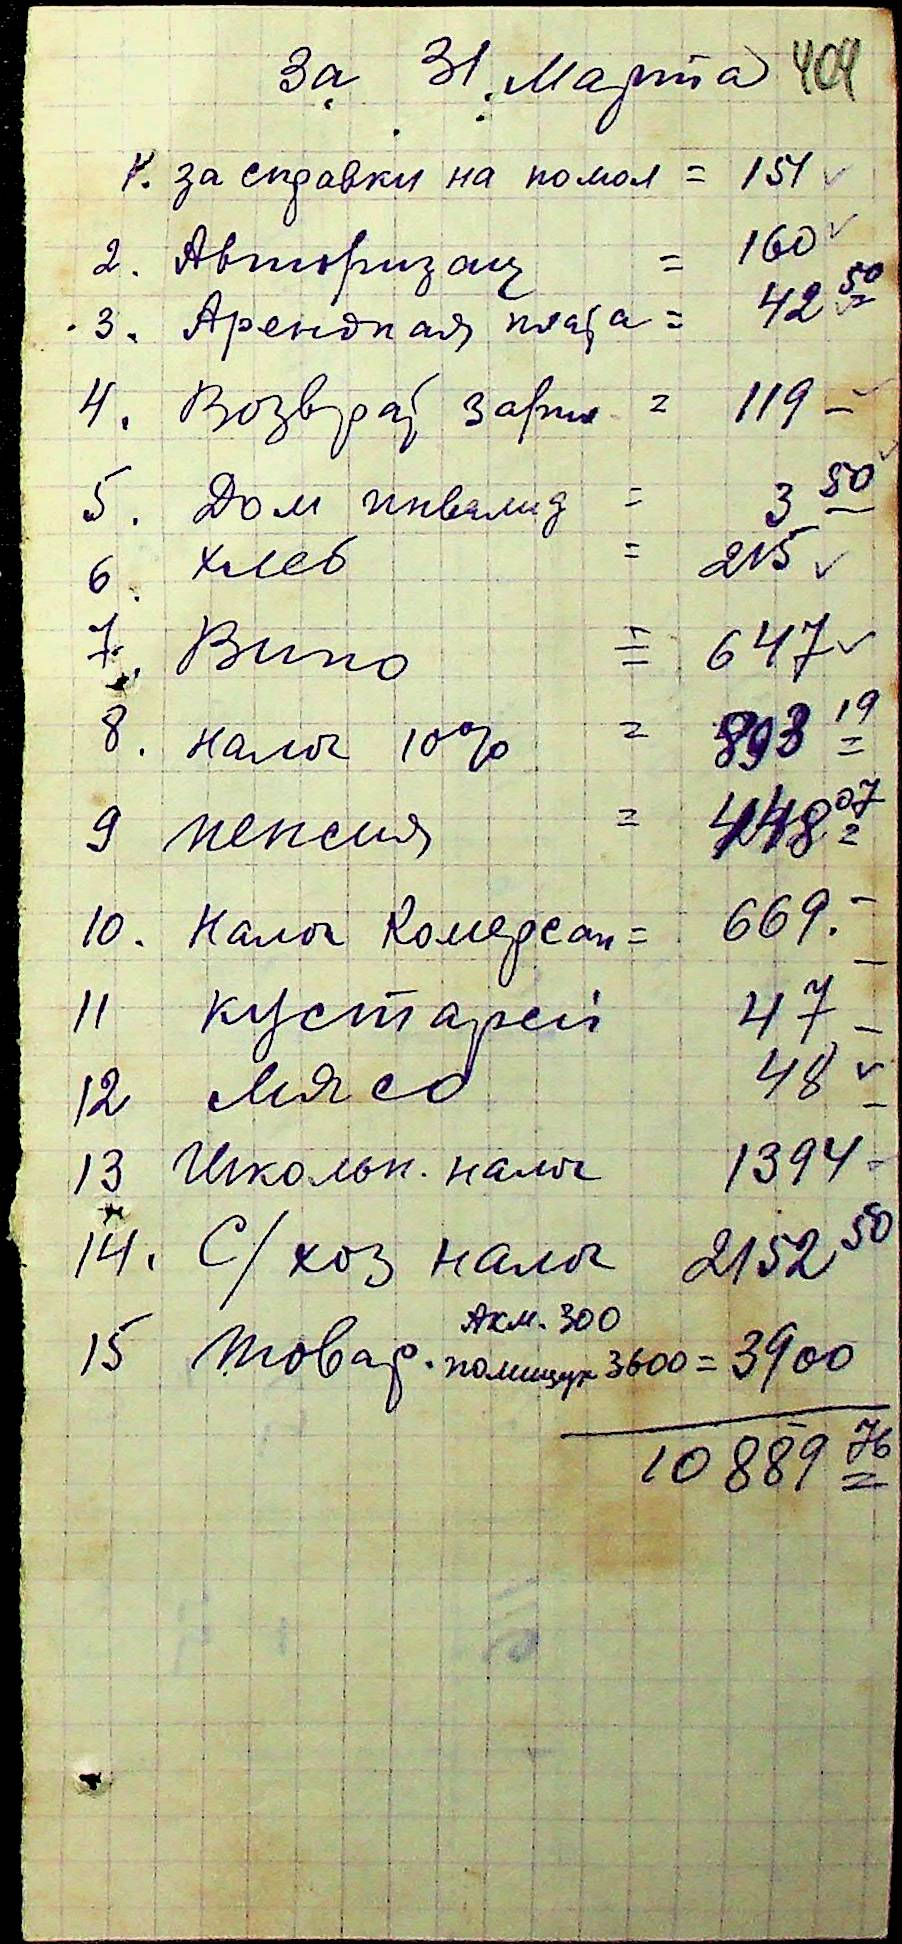 За 31 Марта 404
1. за справки на помол = 151 ✓
2. Авторизац = 160 ✓
3. Арендная плата = 42 50
4. Возврат зарпл = 119 –
5. Дом инвалид = 3 50
6. Хлеб = 215 ✓
7. Вино = 647 ✓
8. налог 10% = 893 19
9 пенсия = 448 07
10. Налог Комерсан = 669. –
11 кустарей 47 –
12 Мясо 48 ✓
13 Школьн. налог 1394 –
14. С/хоз налог 2152 50
Акм. 300
15 Товар. полищук 3600 = 3900
10889 76